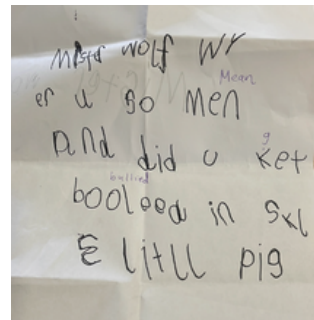 Mistr wolf wy
Mean
er u so men
and did u ket
g
bullied
booleed in sxl
3 litll pig